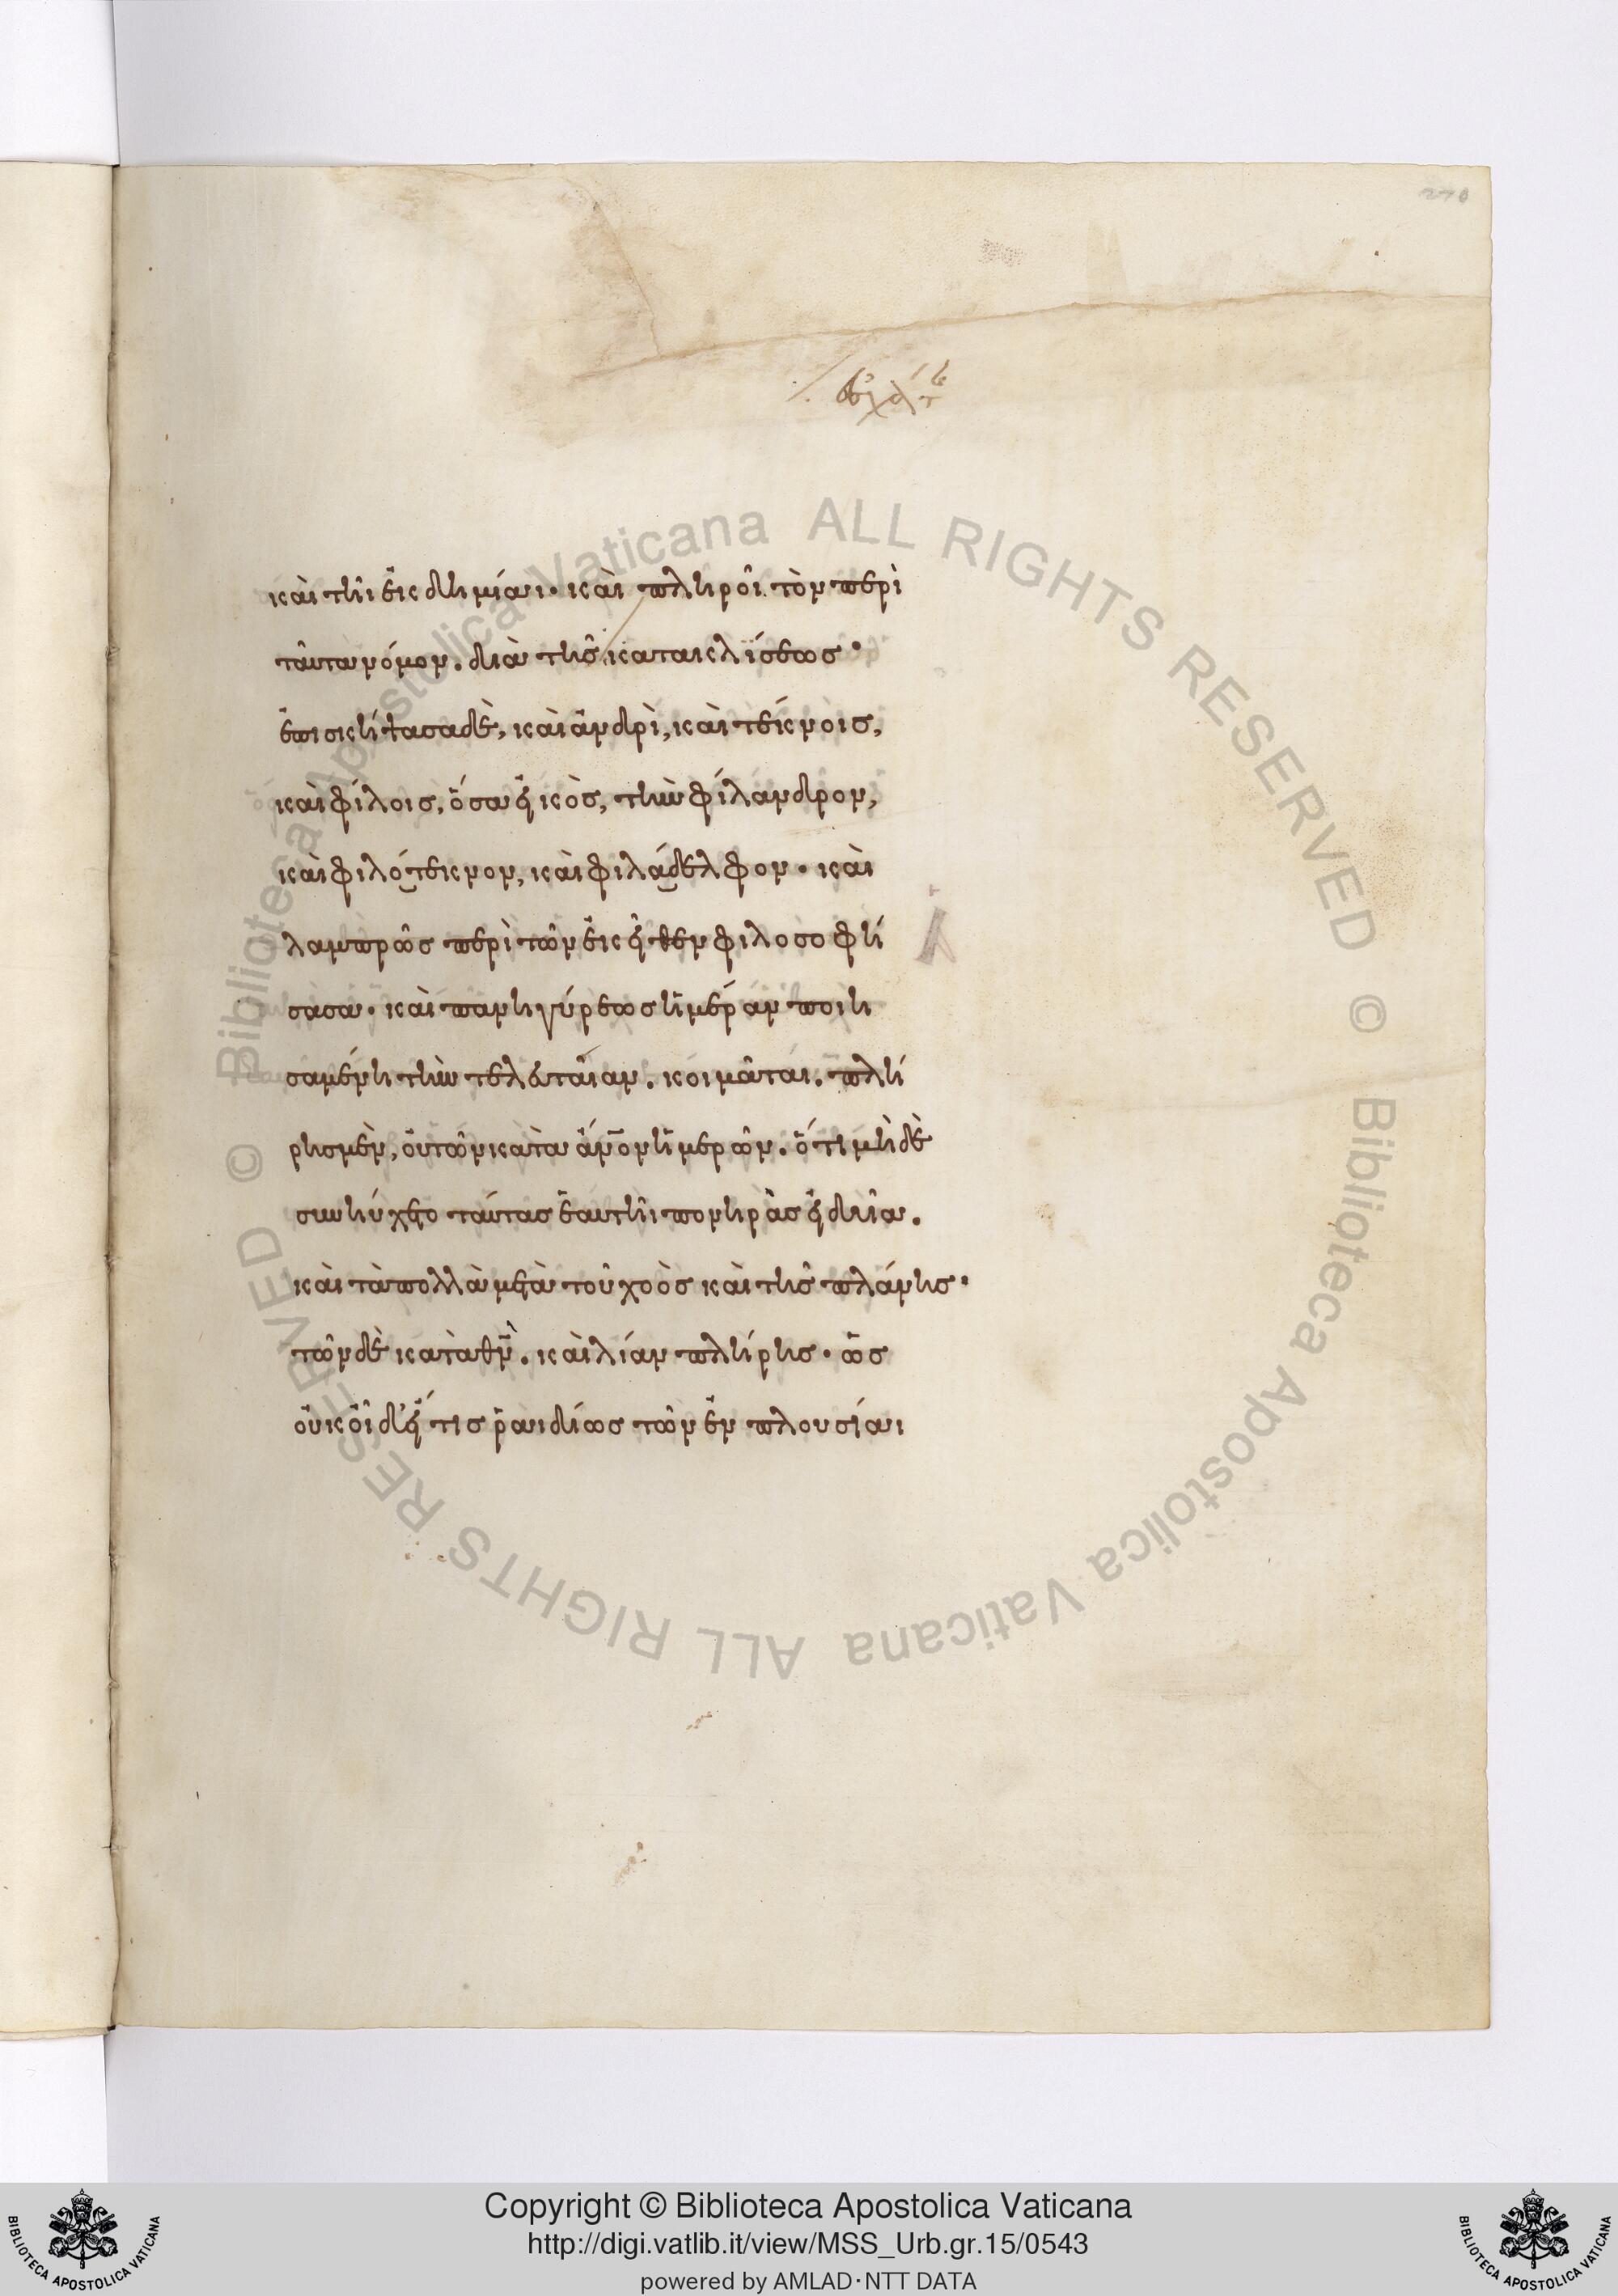 270
καὶ τῆι ἐκδημίαι· καὶ πληροῖ τὸν περὶ
ταῦτα νόμον. διὰ τῆς κατακλίσεως·
ἐπισκήψασα δὲ, καὶ ἀνδρὶ, καὶ τέκνοις,
καὶ φίλοις, ὅσα εἰκὸς, τὴν φίλανδρον,
καὶ φιλότεκνον, καὶ φιλάδελφον· καὶ
λαμπρῶς περὶ τῶν ἐκεῖθεν φιλοσοφή
σασα· καὶ πανηγύρεως ἡμέραν ποιη
σαμένη τὴν τελευταίαν. κοιμᾶται. πλή
ρης μὲν, οὐ τῶν κατὰ ἄνον ἡμερῶν. ὅτι μὴ δὲ
συνηύχετο ταύτας ἑαυτῆι πονηρὰς εἰδυῖα.
καὶ τὰ πολλὰ μετὰ τοῦ χοὸς καὶ τῆς πλάνης·
τῶν δὲ κατὰ θν̄. καὶ λίαν πλήρης· ὡς
οὐκ οἶδ' εἴ τις ῥαιδίως τῶν ἐν πλουσίαι
Copyright © Biblioteca Apostolica Vaticana
http://digi.vatlib.it/view/MSS_Urb.gr.15/0543
powered by AMLAD·NTT DATA
BIBLIOTECA APOSTOLICA VATICANA
BIBLIOTECA APOSTOLICA VATICANA
© Biblioteca Apostolica Vaticana ALL RIGHTS RESERVED
© Biblioteca Apostolica Vaticana ALL RIGHTS RESERVED